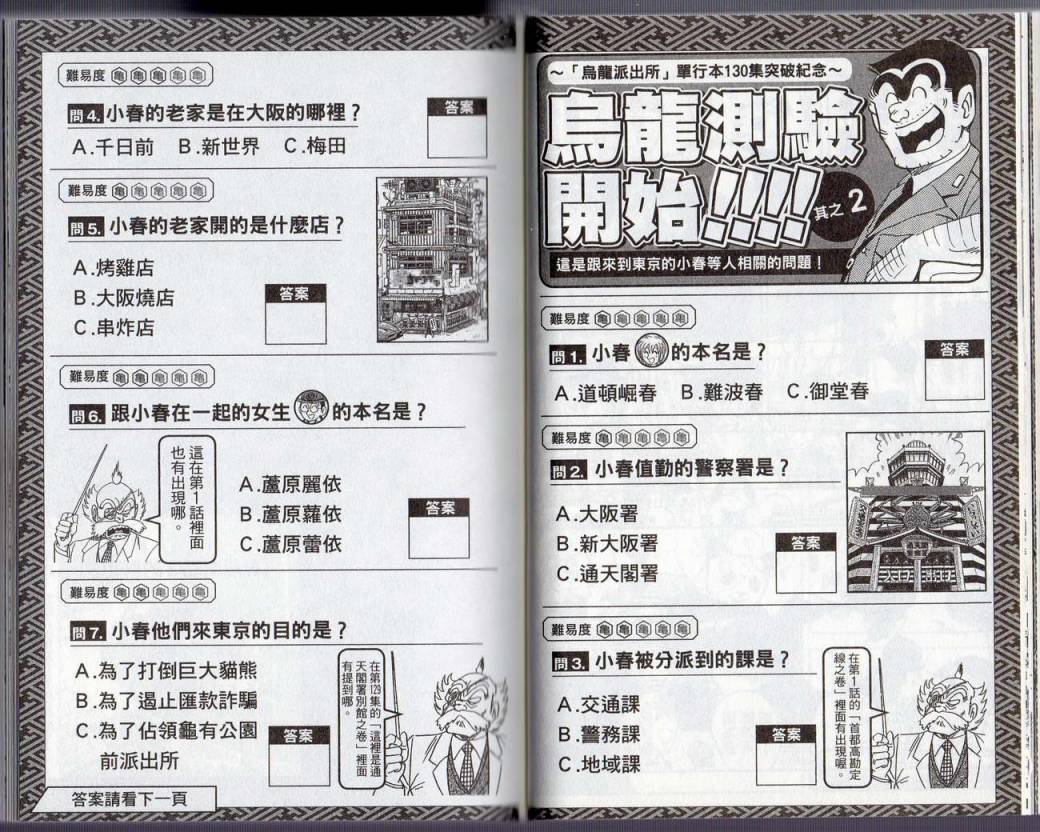 ～「烏龍派出所」單行本130集突破紀念～
烏龍測驗
開始!!!!
其之2
這是跟來到東京的小春等人相關的問題！
難易度 龜龜龜龜龜
問1. 小春的本名是？
答案
A.道頓崛春 B.難波春 C.御堂春
難易度 龜龜龜龜龜
問2. 小春值勤的警察署是？
A.大阪署
B.新大阪署
C.通天閣署
答案
難易度 龜龜龜龜龜
問3. 小春被分派到的課是？
A.交通課
B.警務課
C.地域課
答案
在第1話的「首都高勘定
線之卷」裡面有出現喔。
難易度 龜龜龜龜龜
問4. 小春的老家是在大阪的哪裡？
答案
A.千日前 B.新世界 C.梅田
難易度 龜龜龜龜龜
問5. 小春的老家開的是什麼店？
A.烤雞店
B.大阪燒店
C.串炸店
答案
難易度 龜龜龜龜龜
問6. 跟小春在一起的女生的本名是？
這在第1話裡面
也有出現哪。
A.蘆原麗依
B.蘆原蘿依
C.蘆原蕾依
答案
難易度 龜龜龜龜龜
問7. 小春他們來東京的目的是？
A.為了打倒巨大貓熊
B.為了遏止匯款詐騙
C.為了佔領龜有公園
前派出所
答案
在第129集的「這裡是通
天閣署別館之卷」裡面
有提到哪。
答案請看下一頁